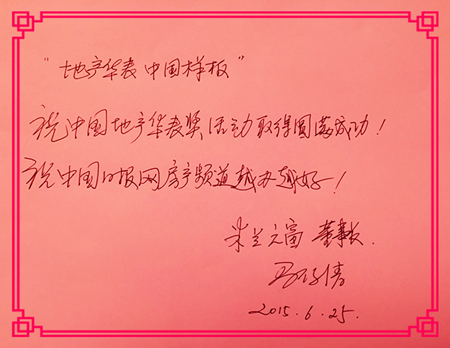 “地产华表 中国样板”
祝中国地产华表奖活动取得圆满成功！
祝中国日报网房产频道越办越好！
米兰之窗 董事长
马俊清
2015.6.25.